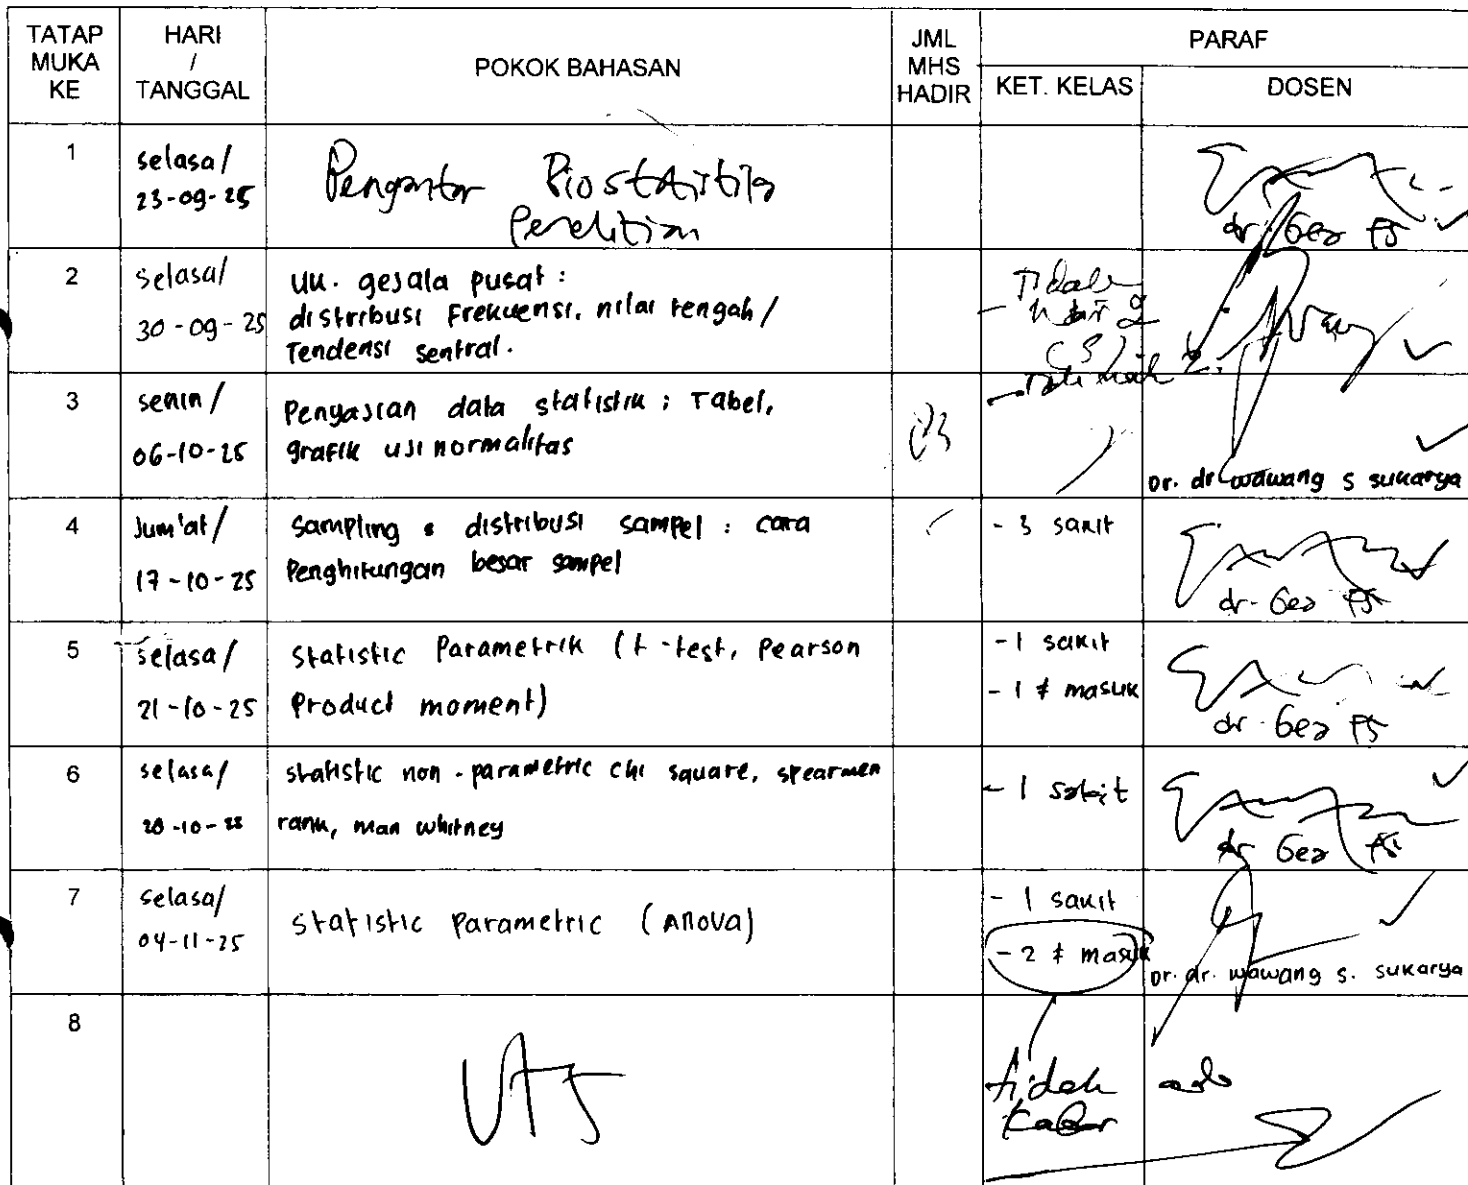 TATAP MUKA KE
HARI / TANGGAL
POKOK BAHASAN
JML MHS HADIR
PARAF
KET. KELAS
DOSEN
1
selasa/
23-09-25
Pengantar Biostatistika
Penelitian
dr. Gea
2
selasa/
30-09-25
UU. gejala pusat :
distribusi Frekuensi, nilai tengah /
Tendensi sentral.
Tidak
3
senin /
06-10-25
Penyajian data statistik ; Tabel,
grafik uji normalitas
Dr. dr wawang s sukarya
4
Jum'at /
17-10-25
Sampling & distribusi sampel : cara
Penghitungan besar sampel
- 3 sakit
dr. Gea
5
selasa /
21-10-25
Statistic Parametrik (t-test, Pearson
Product moment)
- 1 sakit
- 1 ≠ masuk
dr. Gea
6
selasa/
statistic non-parametric chi square, spearmen
rank, man whitney
- 1 sakit
dr Gea
7
selasa/
04-11-25
statistic parametric (Anova)
- 1 sakit
- 2 ≠ masuk
Dr. dr. wawang s. sukarya
8
UTS
tidak ada
kabar